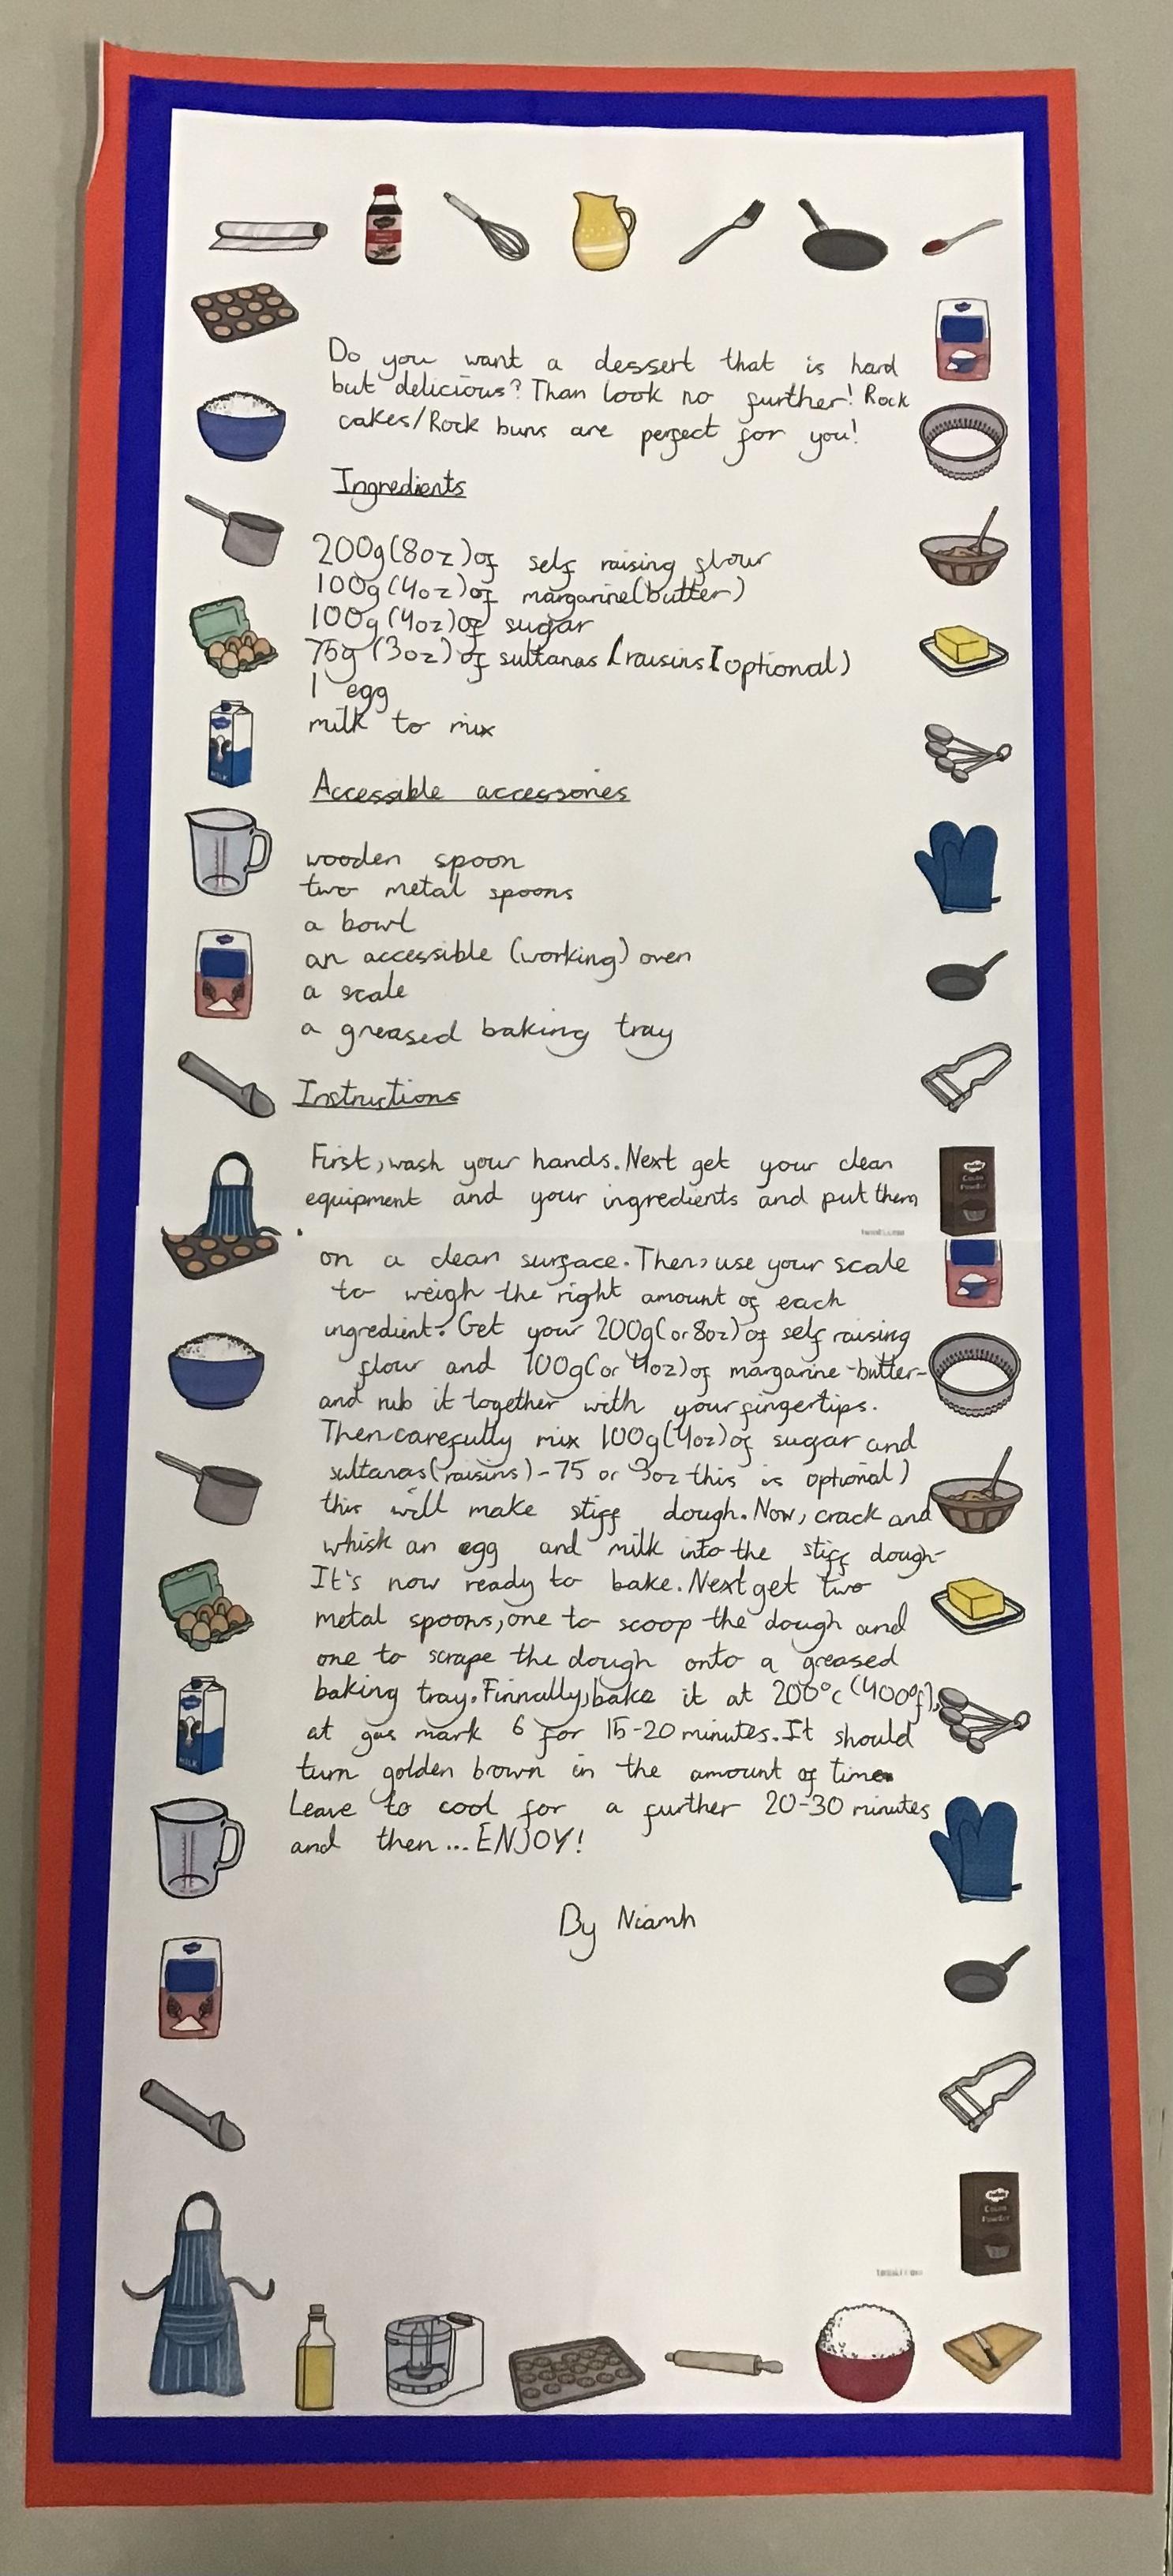 Do you want a dessert that is hard
but delicious? Than look no further! Rock
cakes/Rock buns are perfect for you!
Ingredients
200g(8oz)of self raising flour
100g(4oz)of margarine(butter)
100g(4oz)of sugar
75g (3oz) of sultanas (raisins[optional)
1 egg
milk to mix
Accessible accessories
wooden spoon
two metal spoons
a bowl
an accessible (working) oven
a scale
a greased baking tray
Instructions
First, wash your hands. Next get your clean
equipment and your ingredients and put them
on a clean surface. Then, use your scale
to weigh the right amount of each
ingredient. Get your 200g(or 8oz) of self raising
flour and 100g(or 4oz) of margarine -butter-
and rub it together with your fingertips.
Then carefully mix 100g(4oz) of sugar and
sultanas(raisins)-75 or 3oz this is optional)
this will make stiff dough. Now, crack and
whisk an egg and milk into the stiff dough-
It's now ready to bake. Next get two
metal spoons, one to scoop the dough and
one to scrape the dough onto a greased
baking tray. Finnally, bake it at 200°c (400°f),
at gas mark 6 for 15-20 minutes. It should
turn golden brown in the amount of time.
Leave to cool for a further 20-30 minutes
and then... ENJOY!
By Niamh
MILK
MILK